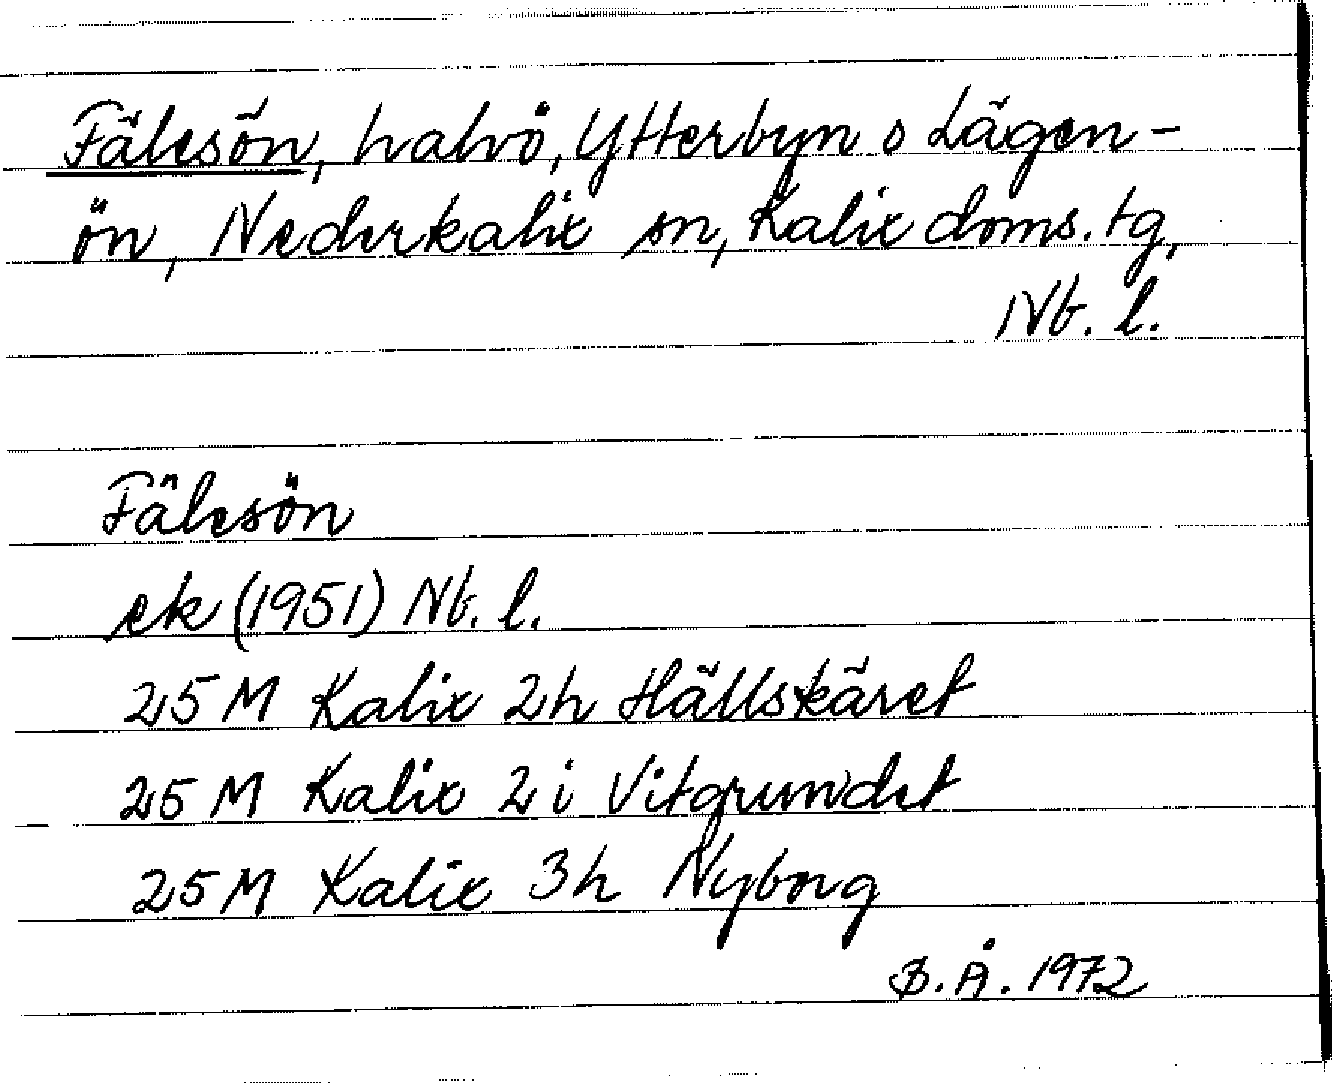 Fälesön, halvö, Ytterbyn o Lägen-
ön, Nederkalix sn, Kalix doms. tg,
Nb. l.
Fälesön
ek (1951) Nb. l.
25 M Kalix 2h Hällskäret
25 M Kalix 2i Vitgrundet
25 M Kalix 3h Nyborg
B. Å. 1972